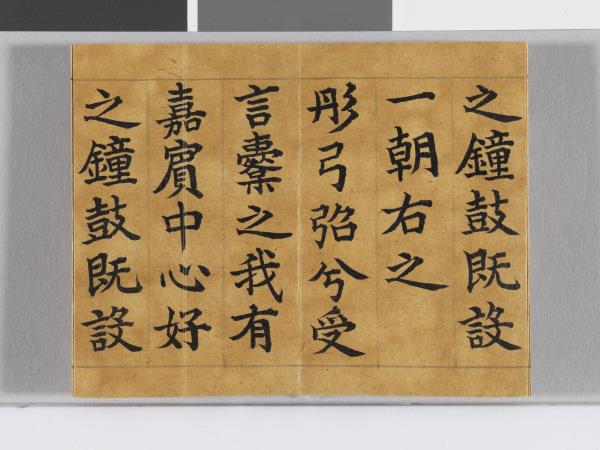 之鐘鼓既設
一朝右之
彤弓弨兮受
言櫜之我有
嘉賓中心好
之鐘鼓既設